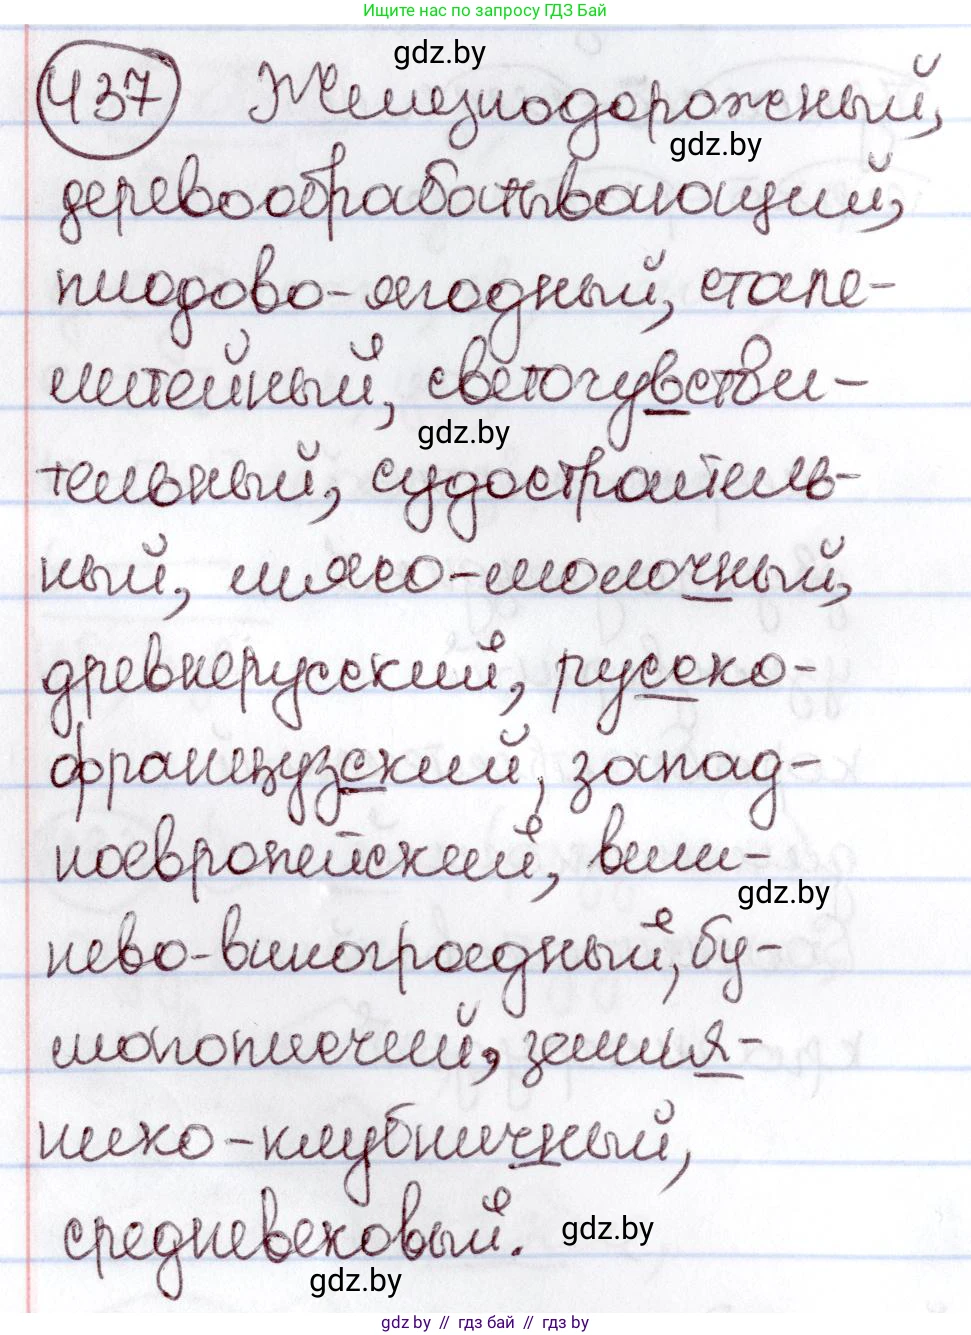 Ищите нас по запросу ГДЗ Бай
gdz.by
437 Железнодорожный,
gdz.by
деревообрабатывающий,
плодово-ягодный, стале-
литейный, светочувстви-
gdz.by
тельный, судостроитель-
ный, мясо-молочный,
древнерусский, русско-
французский, запад-
ноевропейский, виш-
gdz.by
нево-виноградный, бу-
магоплечий, земля-
нико-клубничный,
средневековый.
gdz.by
gdz.by
gdz.by // гдз бай // gdz.by